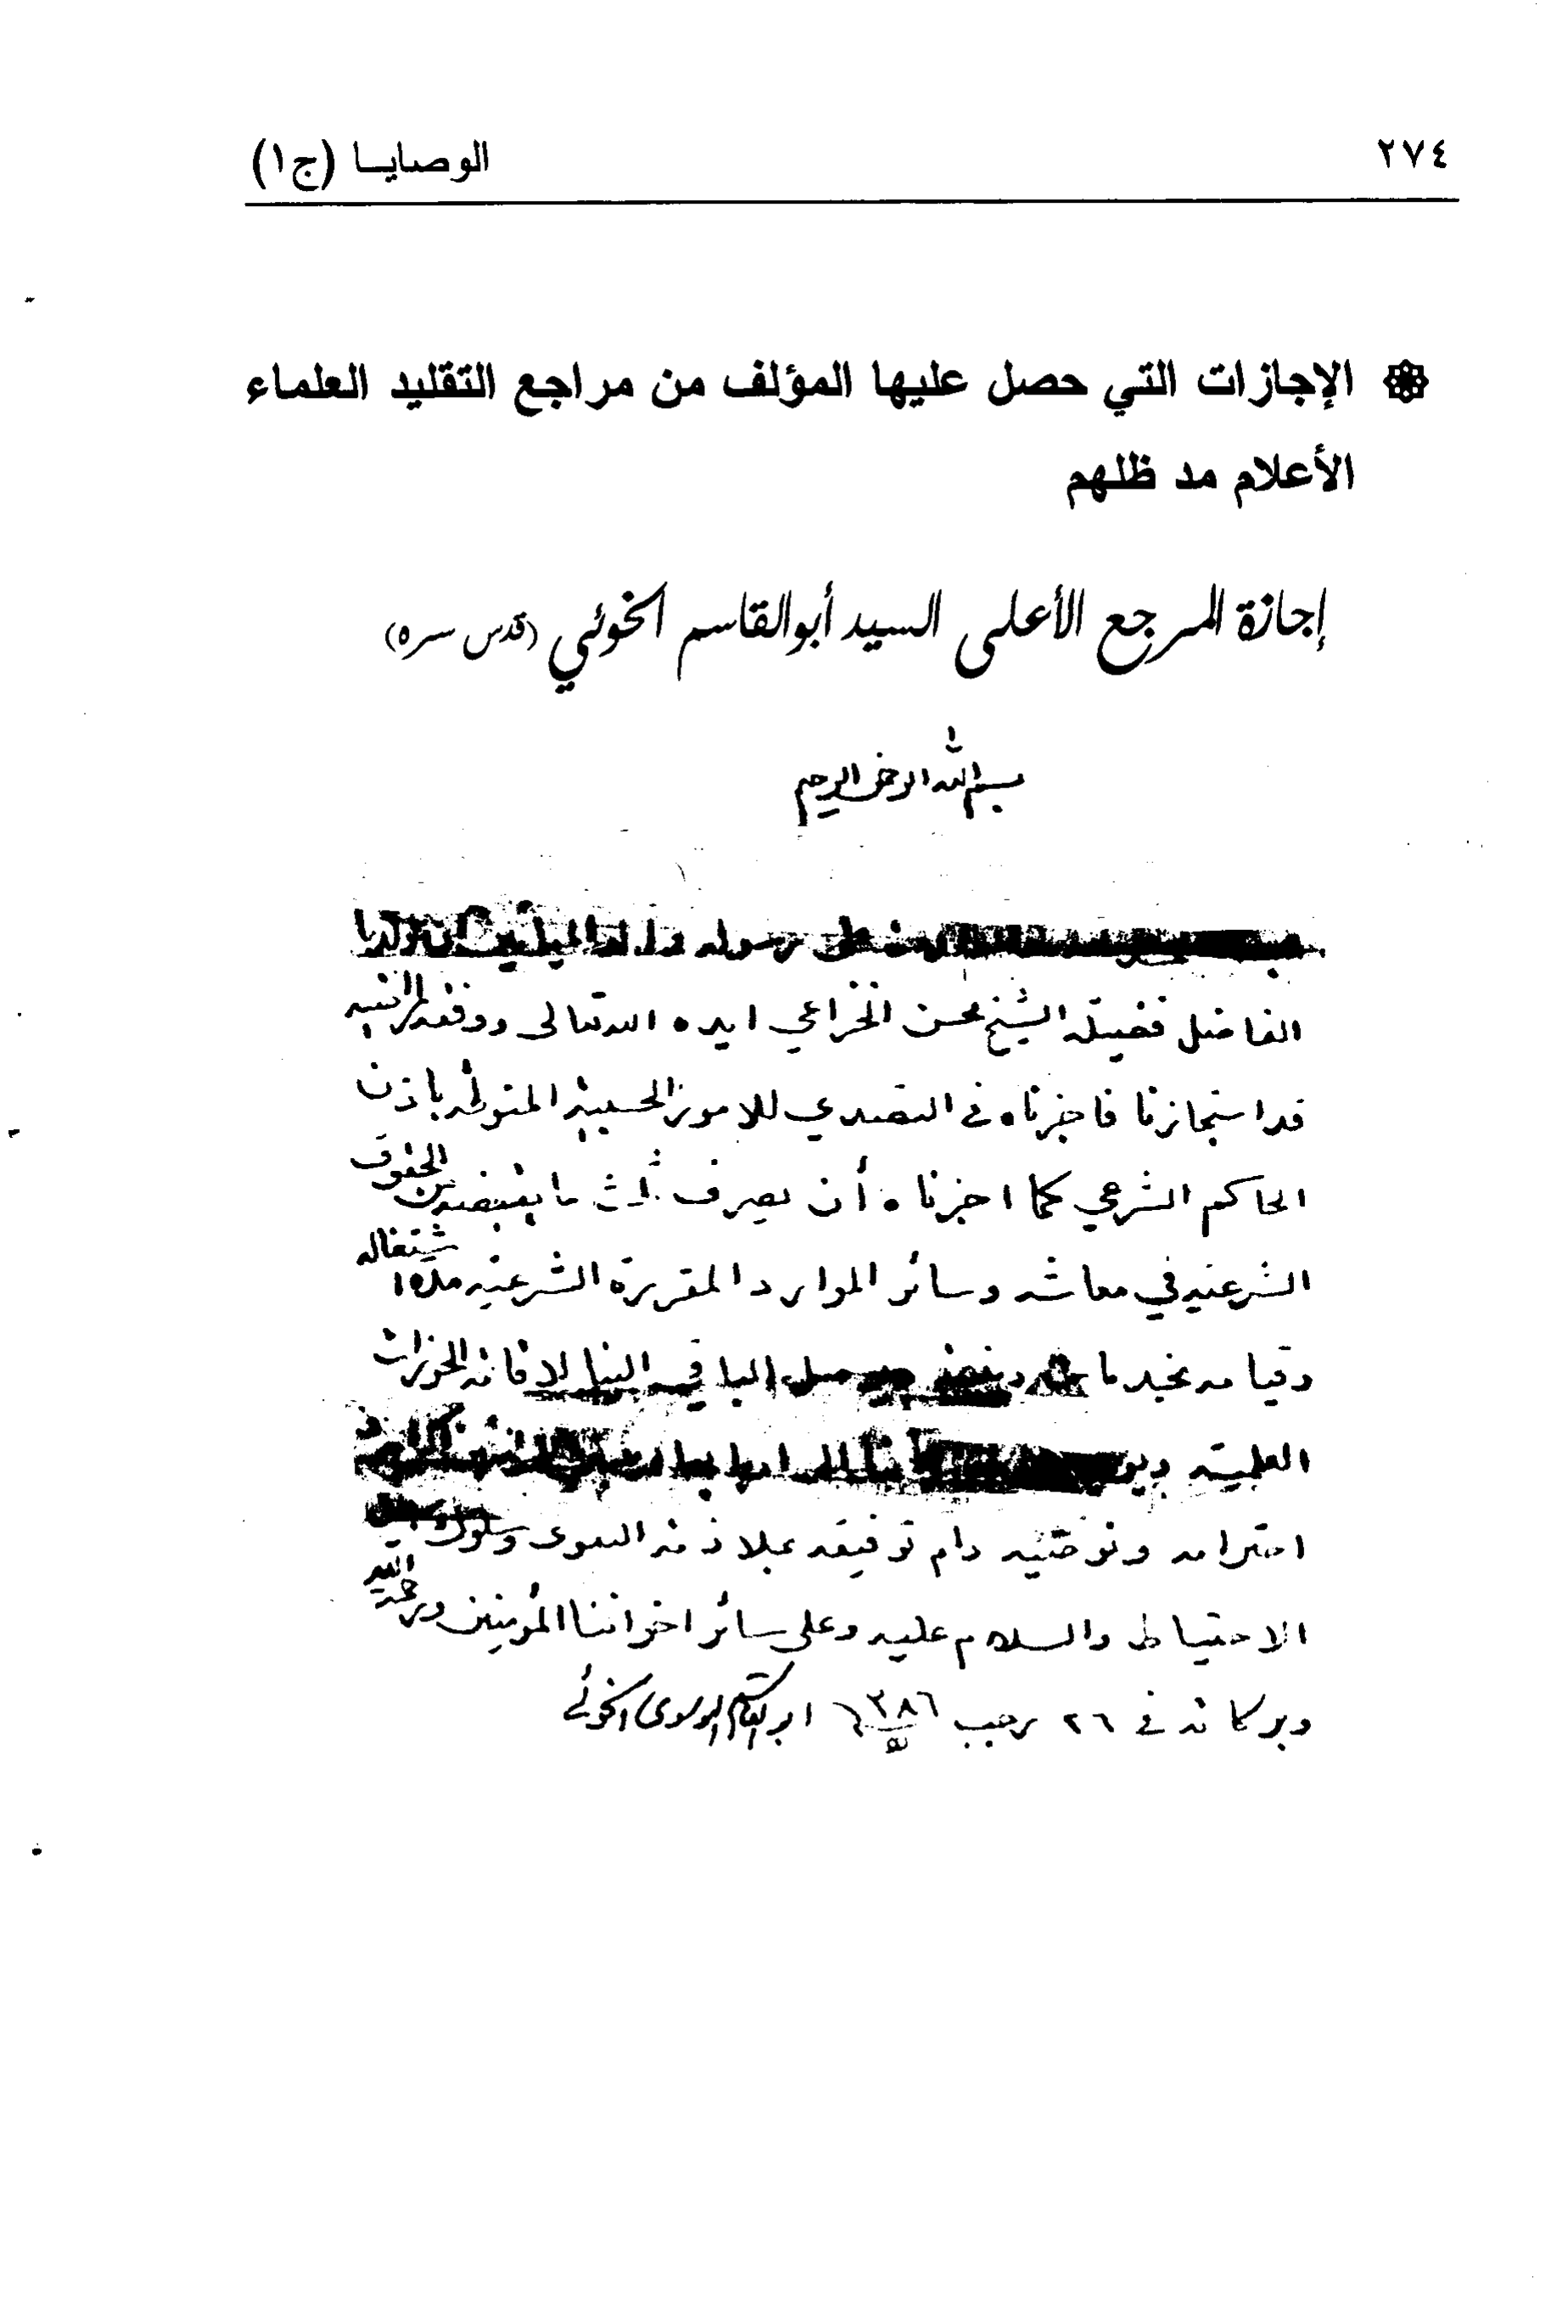 ٢٧٤
الوصايا (ج١)
الإجازات التي حصل عليها المؤلف من مراجع التقليد العلماء
الأعلام مد ظلهم
إجازة المرجع الأعلى السيد أبوالقاسم الخوئي (قدس سره)
بسم الله الرحمن الرحيم
على رسوله
الفاضل فضيلة الشيخ محسن الخزاعي ايده الله تعالى ووفقه
قد استجازنا فاجزناه في التصدي للامور الحسبية المنوطة باذن
الحاكم الشرعي كما اجزناه أن يصرف ثلث ما يقبضه من الحقوق
الشرعية في معاشه وسائر الموارد المقررة الشرعية مدة اشتغاله
وقيامه بخدمات الباقي الينا لاقامة الحوزات
العلمية
احترامه ونوصيه دام توفيقه بملازمة التقوى وسلوك
الاحتياط والسلام عليه وعلى سائر اخواننا المؤمنين ورحمة الله
وبركاته في ٢٦ رجب ١٣٨٦ ه ابو القاسم الموسوى الخوئي